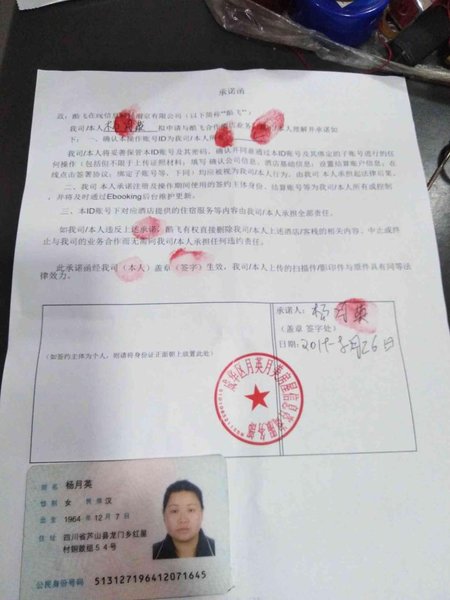 承诺函
致：酷飞在线信息科技南京有限公司（以下简称“酷飞”）
我司/本人杨月英 拟申请与酷飞合作酒店业务 本人理解并承诺如
下：一、确认本操作账号ID为我司/本人所有
我司/本人将妥善保管本ID账号及其密码，确认并同意通过本ID账号及其绑定的子账号进行的任
何操作（包括但不限于上传证照材料；填写 确认公司信息、酒店基础信息；设置结算账户信息；在
线点击签署协议；绑定子账号等，下同）均应被视为我司/本人行为，由我司 本人承担起法律后果。
二、我司 本人承诺注册及操作期间使用的签约主体身份、结算账号等为我司/本人所有或控制
，并将及时通过Ebooking后台维护更新；
三、本ID账号下对应酒店提供的住宿服务等内容由我司/本人承担全部责任。
如我司/本人违反上述承诺，酷飞有权直接删除我司/本人上述酒店/客栈的相关内容、中止或终
止与我司的业务合作而无需向我司/本人承担任何违约责任。
此承诺函经我司（本人）盖章（签字）生效，我司/本人上传的扫描件/影印件与原件具有同等法
律效力。
承诺人：杨月英
（盖章 签字处）
日期：2019 8月26日
（如签约主体为个人，则请将身份证正面朝上放置此处）
成华区月英月美房屋信息咨询服务部
姓名 杨月英
性别 女 民族 汉
出生 1964 年 12 月 7 日
住址 四川省芦山县龙门乡红星
村铜鼓组54号
公民身份号码 513127196412071645